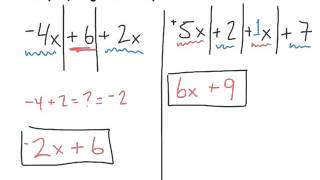 -4x + 6 + 2x
-4 + 2 = ? = -2
-2x + 6
+5x + 2 + 1x + 7
6x + 9